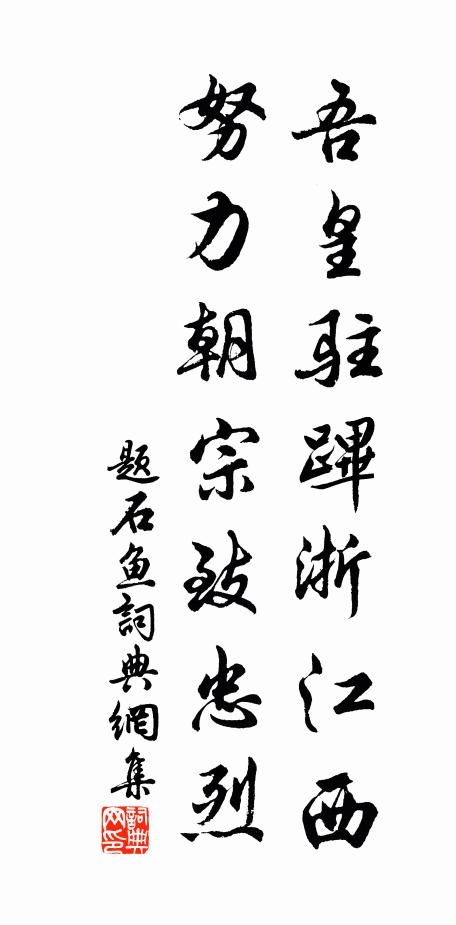 吾皇駐蹕浙江西
努力朝宗致忠烈
题石鱼詞典網集
詞典网印